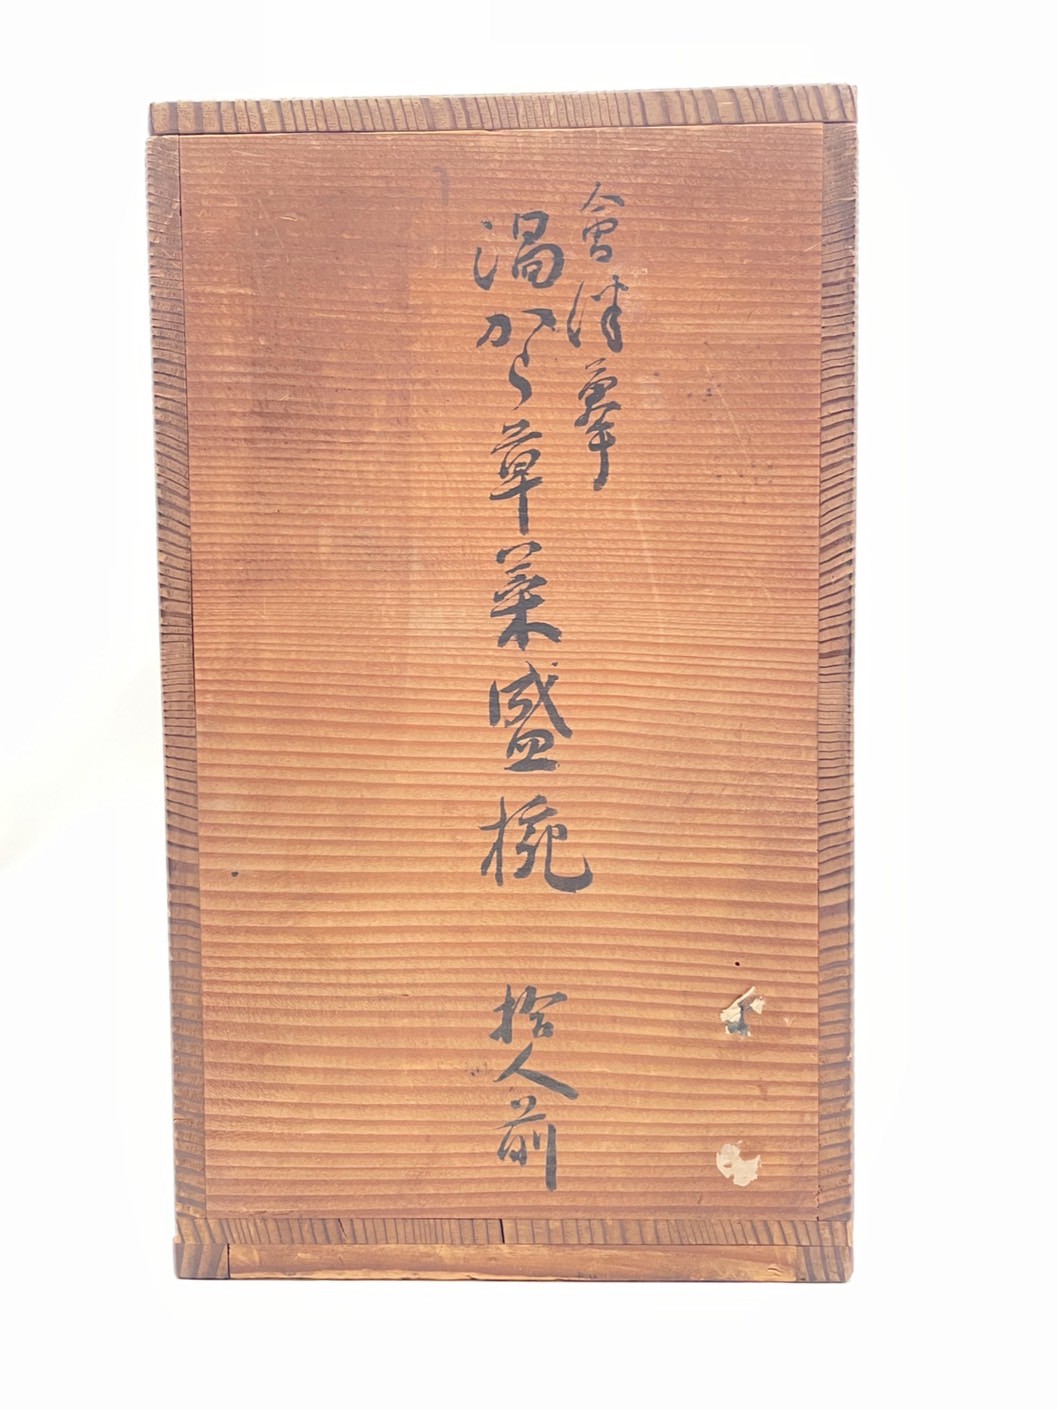 會津摹
渦から草菜盛椀 拾人前